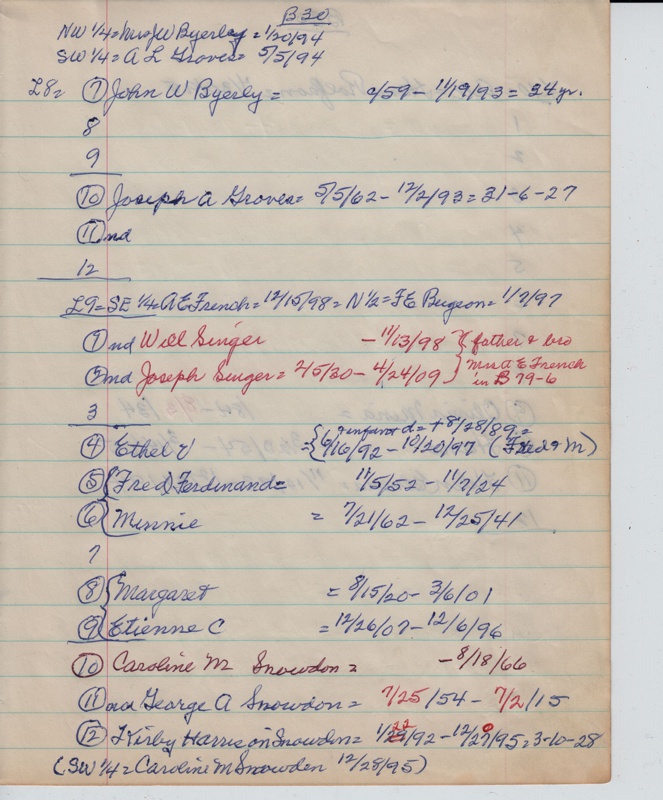 B30
NW 1/4 = Mrs JW Byerley = 1/20/94
SW 1/4 = A L Groves = 5/5/94
L8 = (7) John W Byerly = 9/59 - 11/19/93 = 34 yr.
8
9
(10) Joseph A Groves = 5/5/62 - 12/2/93 = 31-6-27
(11) nd
12
L9 = SE 1/4 = A E French = 12/15/98 = N 1/2 = F E Bugeon = 1/7/97
(1) nd Will Singer - 11/13/98 } father & bro
(2) nd Joseph Singer = 4/5/30 - 4/24/09 } Mrs A E French in B 79-6
3
infant d = + 8/28/89 =
(4) Ethel V = { 6/16/92 - 10/20/97 (Fred & M)
(5) { (Fred) Ferdinand = 11/5/52 - 11/7/24
(6) { Minnie = 7/21/62 - 12/25/41
7
(8) { Margaret = 8/15/20 - 3/6/01
(9) { Etienne C = 12/26/07 - 12/6/96
(10) Caroline M Snowdon = - 8/18/66
(11) nd George A Snowdon = 7/25/54 - 7/2/15
(12) Kirby Harrison Snowden = 1/22/92 - 12/20/95 = 3-10-28
(SW 1/4 = Caroline M Snowden 12/28/95)